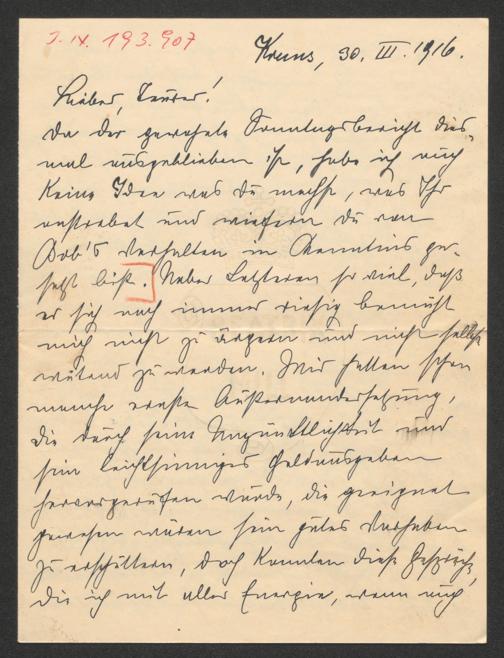 J. IX. 193.907
Krems, 30. III. 1916.
Lieber, Teurer!
Da der gewohnte Sonntagsbericht dies-
mal ausgeblieben ist, habe ich auch
keine Idee was Du machst, was Ihr
anstrebet und wiefern Du von
Bob's Verhalten in Kenntnis ge-
setzt bist. Ueber Letzteren so viel, daß
er sich noch immer riesig bemüht
mich nicht zu ärgern und nicht selbst
wütend zu werden. Wir hatten schon
manche ernste Auseinandersetzung,
die durch seine Unpünktlichkeit und
sein leichtsinniges Geldausgeben
hervorgerufen wurde, die geeignet
gewesen wären sein gutes Vorhaben
zu erschüttern, doch konnten diese Gespräche,
die ich mit aller Energie, wenn auch